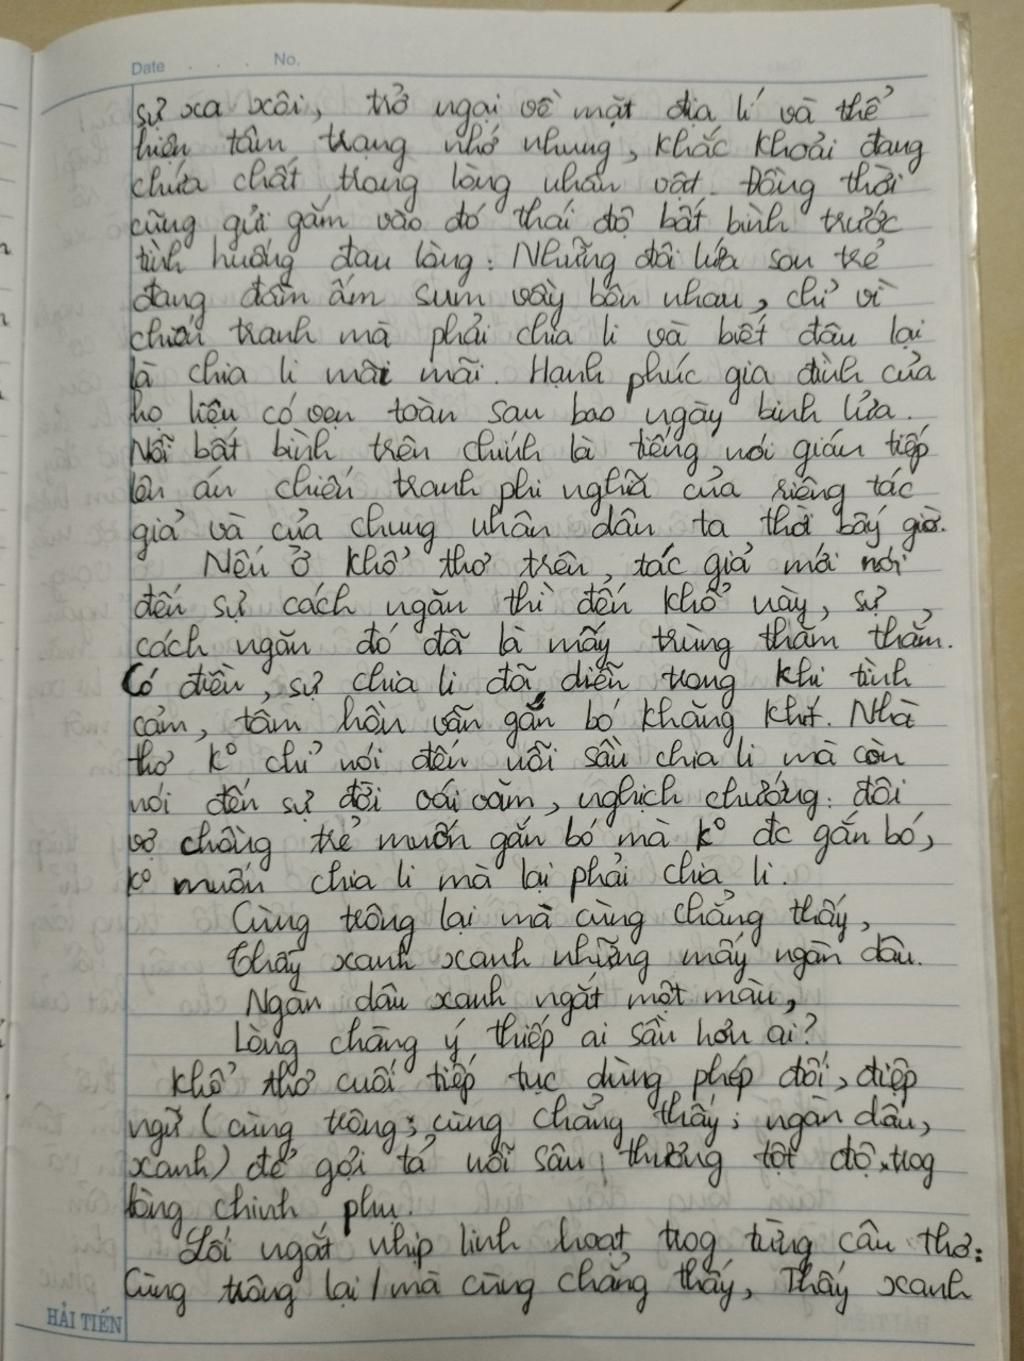 Date . . . No.
sự xa xôi, trở ngại về mặt địa lí và thể
hiện tâm trạng nhớ nhung, khắc khoải đang
chứa chất trong lòng nhân vật. Đồng thời
cũng gửi gắm vào đó thái độ bất bình trước
tình huống đau lòng: Những đôi lứa son trẻ
đang đầm ấm sum vầy bên nhau, chỉ vì
chiến tranh mà phải chia li và biết đâu lại
là chia li mãi mãi. Hạnh phúc gia đình của
họ liệu có vẹn toàn sau bao ngày binh lửa.
Nỗi bất bình trên chính là tiếng nói gián tiếp
lên án chiến tranh phi nghĩa của riêng tác
giả và của chung nhân dân ta thời bấy giờ.
Nếu ở khổ thơ trên, tác giả mới nói
đến sự cách ngăn thì đến khổ này, sự
cách ngăn đó đã là mấy trùng thăm thẳm.
Có điều, sự chia li đã diễn trong khi tình
cảm, tâm hồn vẫn gắn bó khăng khít. Nhà
thơ k° chỉ nói đến nỗi sầu chia li mà còn
nói đến sự đời oái oăm, nghịch chướng: đôi
vợ chồng trẻ muốn gắn bó mà k° đc gắn bó,
k° muốn chia li mà lại phải chia li.
Cùng trông lại mà cùng chẳng thấy,
Thấy xanh xanh những mấy ngàn dâu.
Ngàn dâu xanh ngắt một màu,
Lòng chàng ý thiếp ai sầu hơn ai?
Khổ thơ cuối tiếp tục dùng phép đối, điệp
ngữ (cùng trông; cùng chẳng thấy; ngàn dâu,
xanh) để gợi tả nỗi sầu thương tột độ trog
lòng chinh phụ.
Lối ngắt nhịp linh hoạt trog từng câu thơ:
Cùng trông lại / mà cùng chẳng thấy, Thấy xanh
HẢI TIẾN